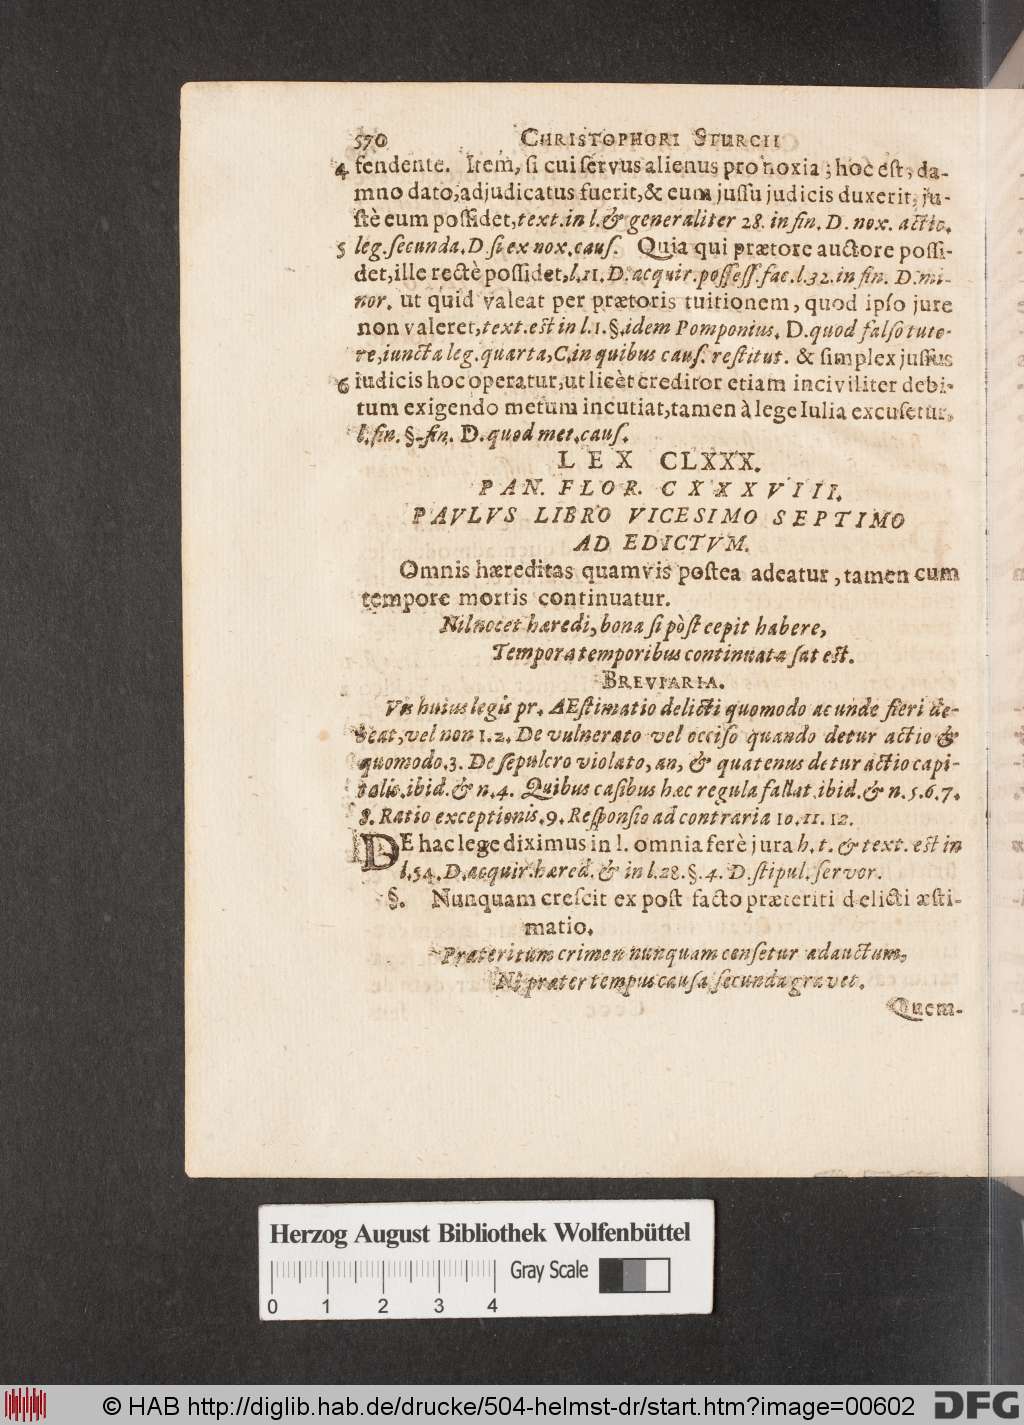 570 CHRISTOPHORI STURCII
4 fendente. Item, si cui servus alienus pro noxia; hoc est, da-
mno dato, adjudicatus fuerit, & eum jussu judicis duxerit, ju-
stè eum possidet, text. in l. & generaliter 28. in fin. D. nox. actio.
5 leg. secunda. D. si ex nox. caus. Quia qui prætore auctore possi-
det, ille rectè possidet, l. 11. D. acquir. possess. fac. l. 32. in fin. D. mi-
nor. ut quid valeat per prætoris tuitionem, quod ipso jure
non valeret, text. est in l. 1. §. idem Pomponius. D. quod falso tuto-
re, iuncta leg. quarta, C. in quibus caus. restitut. & simplex jussus
6 iudicis hoc operatur, ut licèt creditor etiam inciviliter debi-
tum exigendo metum incutiat, tamen à lege Iulia excusetur,
l. fin. §. fin. D. quod met. caus.
LEX CLXXX.
PAN. FLOR. CXXXVIII.
PAVLVS LIBRO VICESIMO SEPTIMO
AD EDICTVM.
Omnis hæreditas quamvis postea adeatur, tamen cum
tempore mortis continuatur.
Nil nocet hæredi, bona si pòst cepit habere,
Tempora temporibus continuata sat est.
BREVIARIA.
Vis huius legis pr. AEstimatio delicti quomodo ac unde fieri de-
beat, vel non 1. 2. De vulnerato vel occiso quando detur actio &
quomodo. 3. De sepulcro violato, an, & quatenus detur actio capi-
talis. ibid. & n. 4. Quibus casibus hæc regula fallat. ibid. & n. 5. 6. 7.
8. Ratio exceptionis. 9. Responsio ad contraria 10. 11. 12.
DE hac lege diximus in l. omnia ferè jura h. t. & text. est in
l. 54. D. acquir. hæred. & in l. 28. §. 4. D. stipul. servor.
§. Nunquam crescit ex post facto præteriti delicti æsti-
matio.
Præteritum crimen nunquam censetur adauctum,
Ni præter tempus causa secunda gravet.
Quem-
Herzog August Bibliothek Wolfenbüttel
Gray Scale
0 1 2 3 4
© HAB http://diglib.hab.de/drucke/504-helmst-dr/start.htm?image=00602
DFG